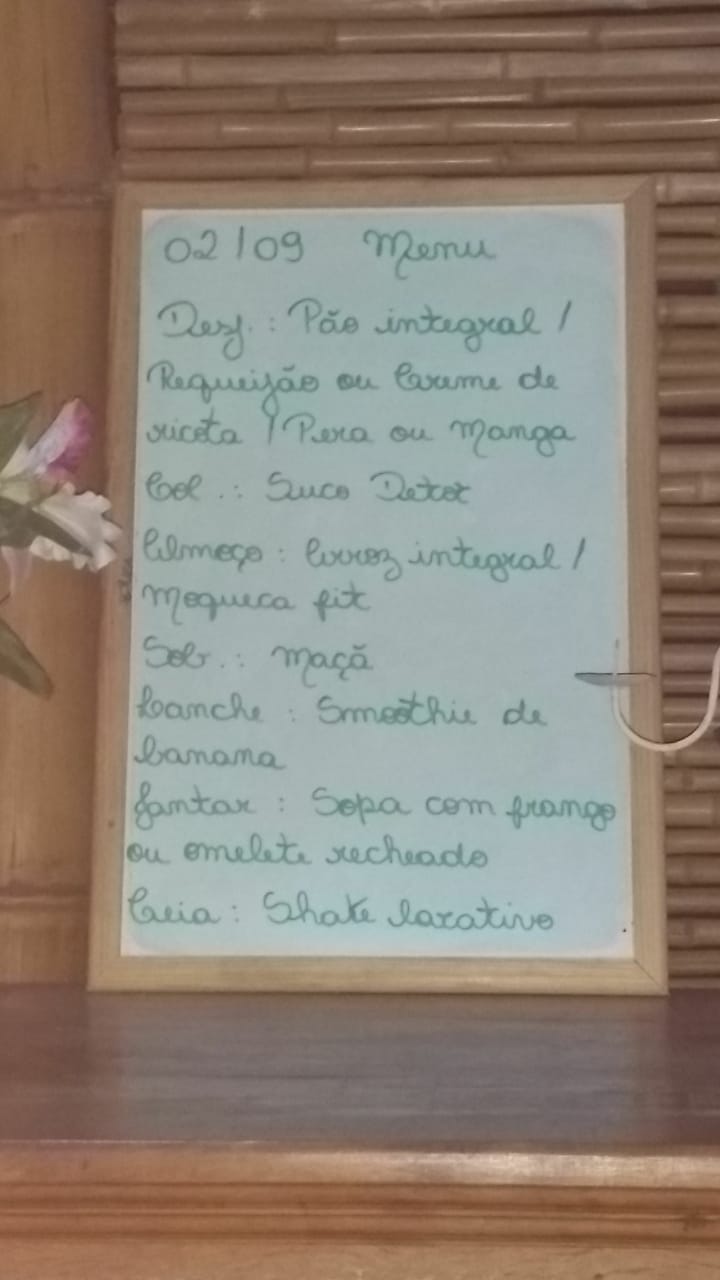 02/09 Menu
Desj.: Pão integral /
Requeijão ou Creme de
ricota / Pera ou Manga
Col.: Suco Detox
Almoço: Arroz integral /
Moqueca fit
Sob.: Maçã
Lanche: Smoothie de
banana
Jantar: Sopa com frango
ou omelete recheado
Ceia: Shake laxativo